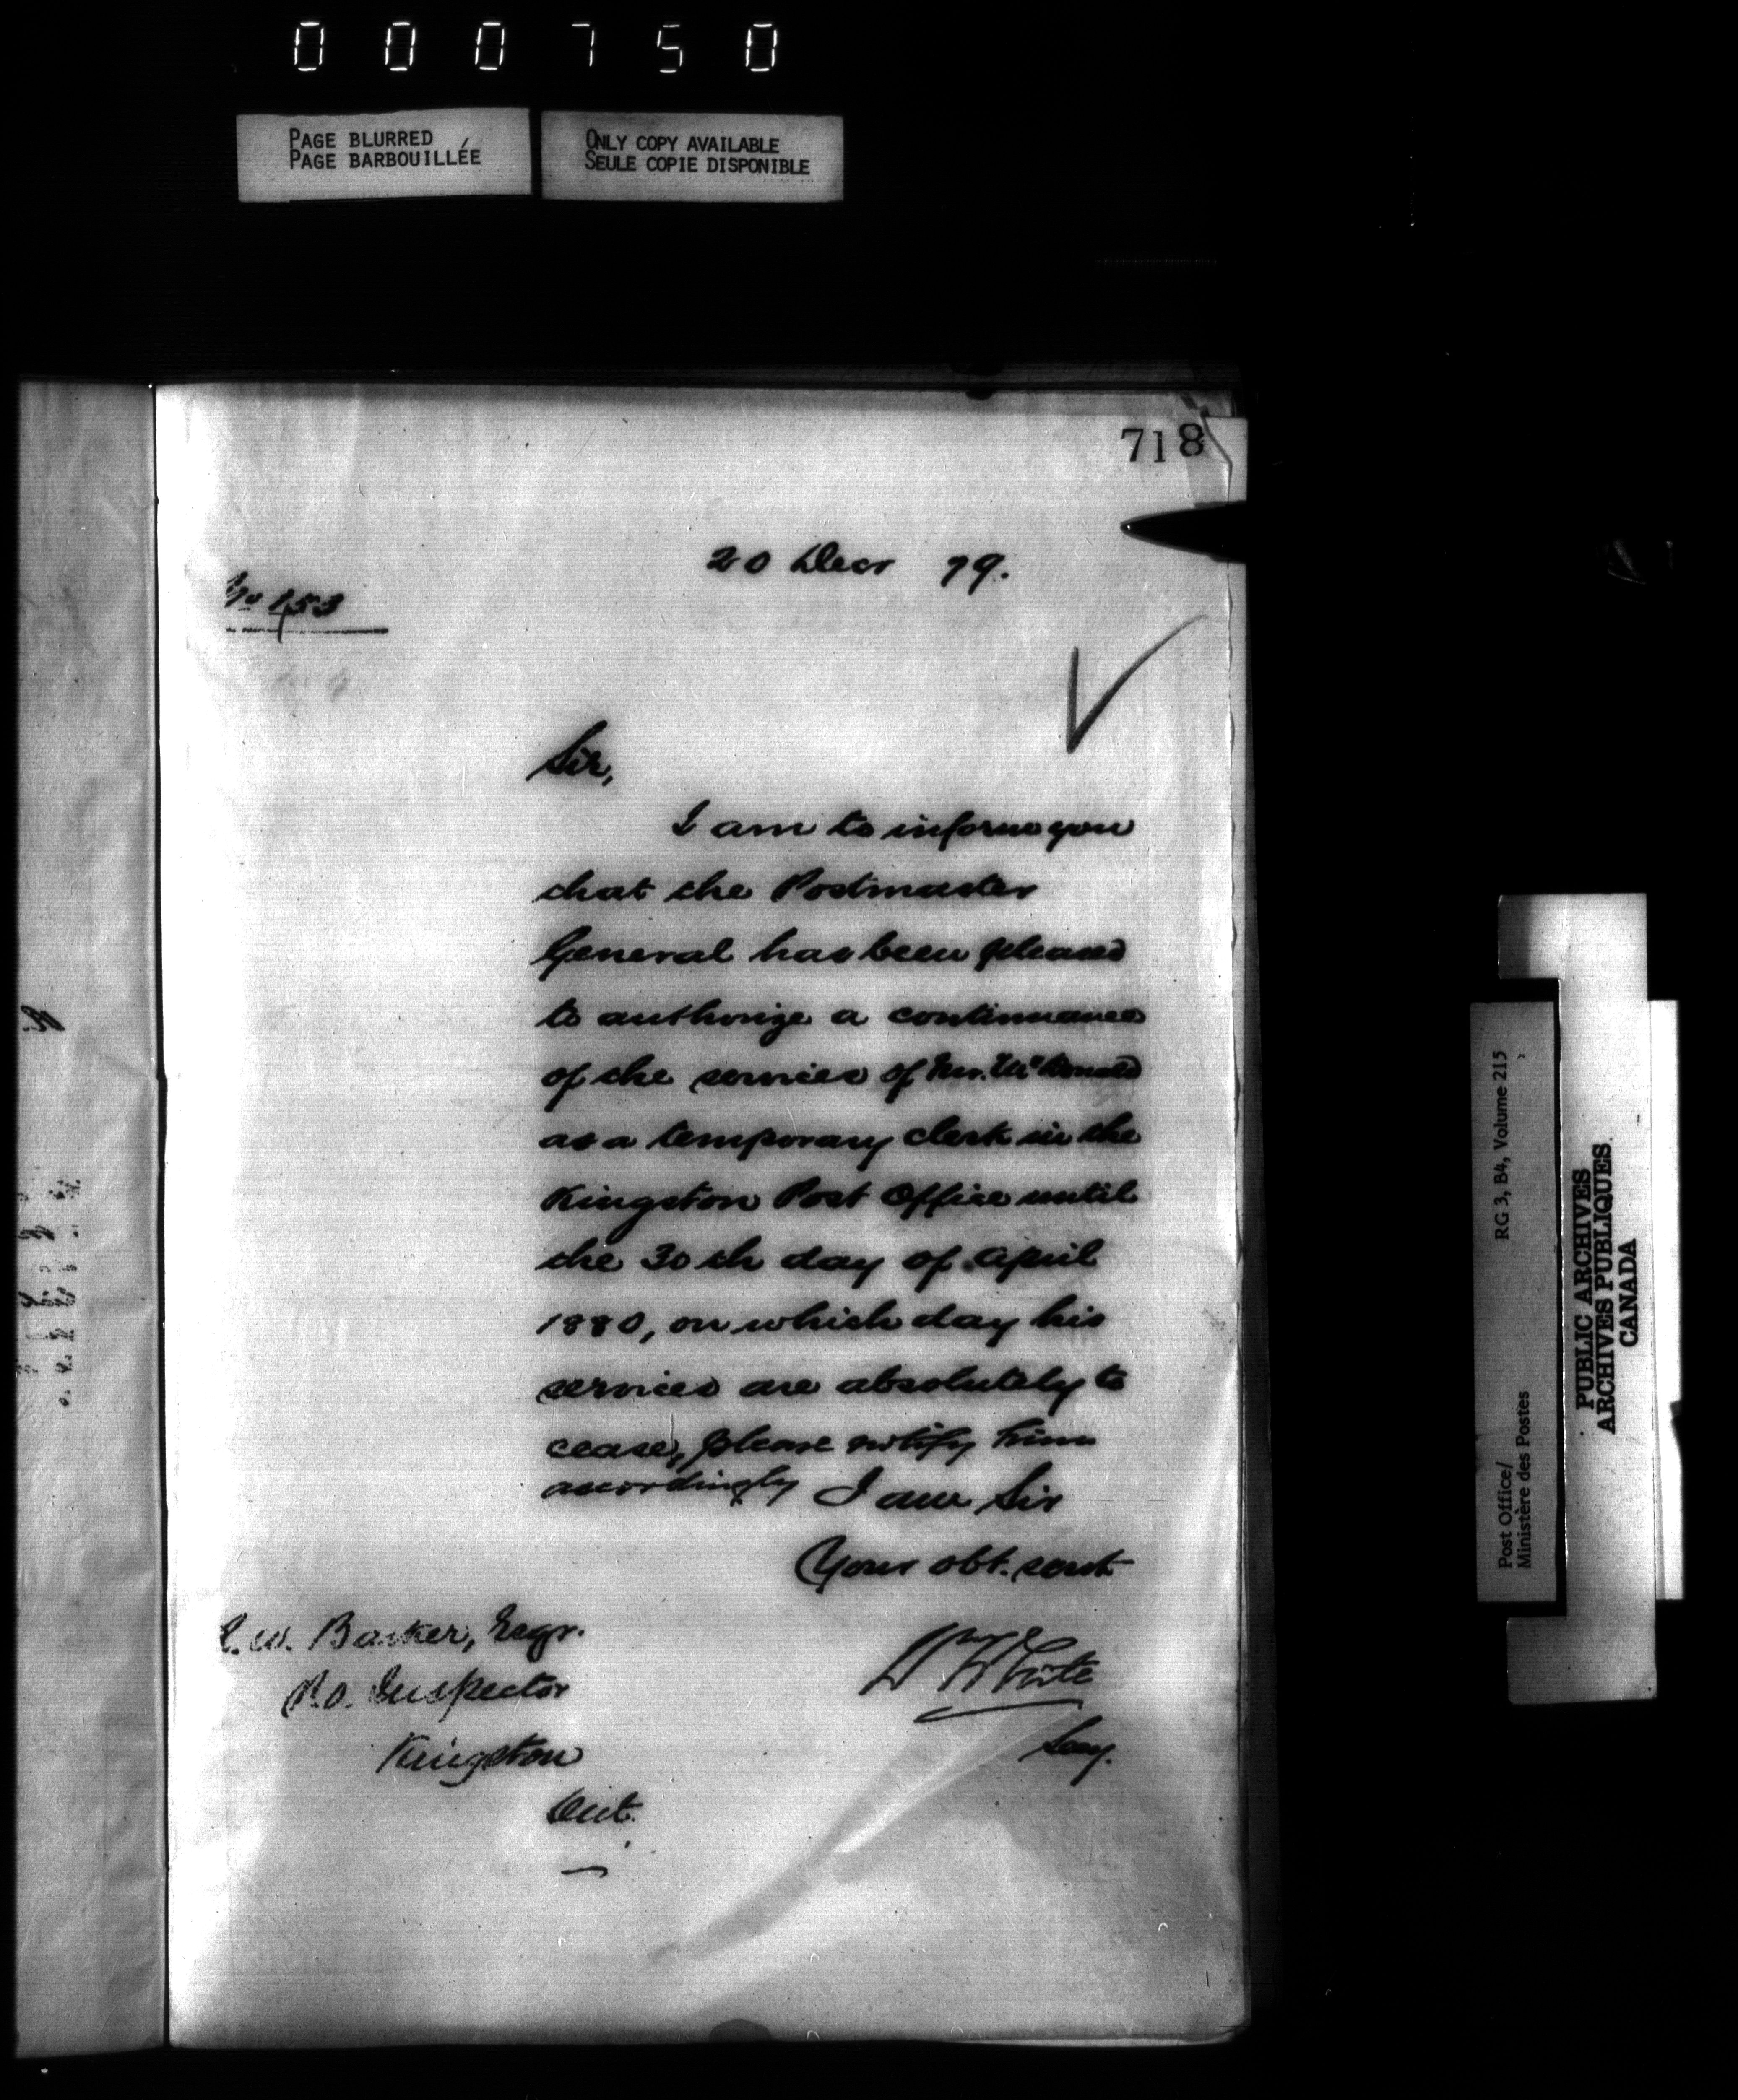 000750
PAGE BLURRED
PAGE BARBOUILLÉE
ONLY COPY AVAILABLE
SEULE COPIE DISPONIBLE
718
20 Decr 79.
No 153
Sir,
I am to inform you
that the Postmaster
General has been pleased
to authorize a continuance
of the services of Mr. McDonald
as a temporary clerk in the
Kingston Post Office until
the 30th day of April
1880, on which day his
services are absolutely to
cease, please notify him
accordingly I am Sir
Your obt. servt
Wm White
Secy.
R.W. Barker, Esqr.
P.O. Inspector
Kingston
Ont.
RG 3, B4, Volume 215
Post Office/
Ministère des Postes
PUBLIC ARCHIVES
ARCHIVES PUBLIQUES
CANADA